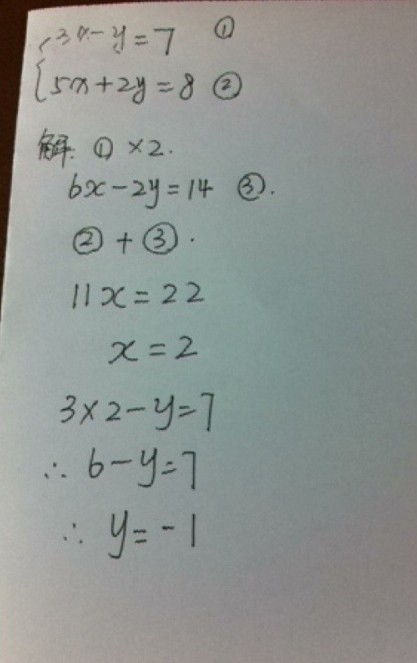 {3x-y=7 ①
5x+2y=8 ②
解: ①×2.
6x-2y=14 ③.
②+③.
11x=22
x=2
3×2-y=7
∴ 6-y=7
∴ y=-1